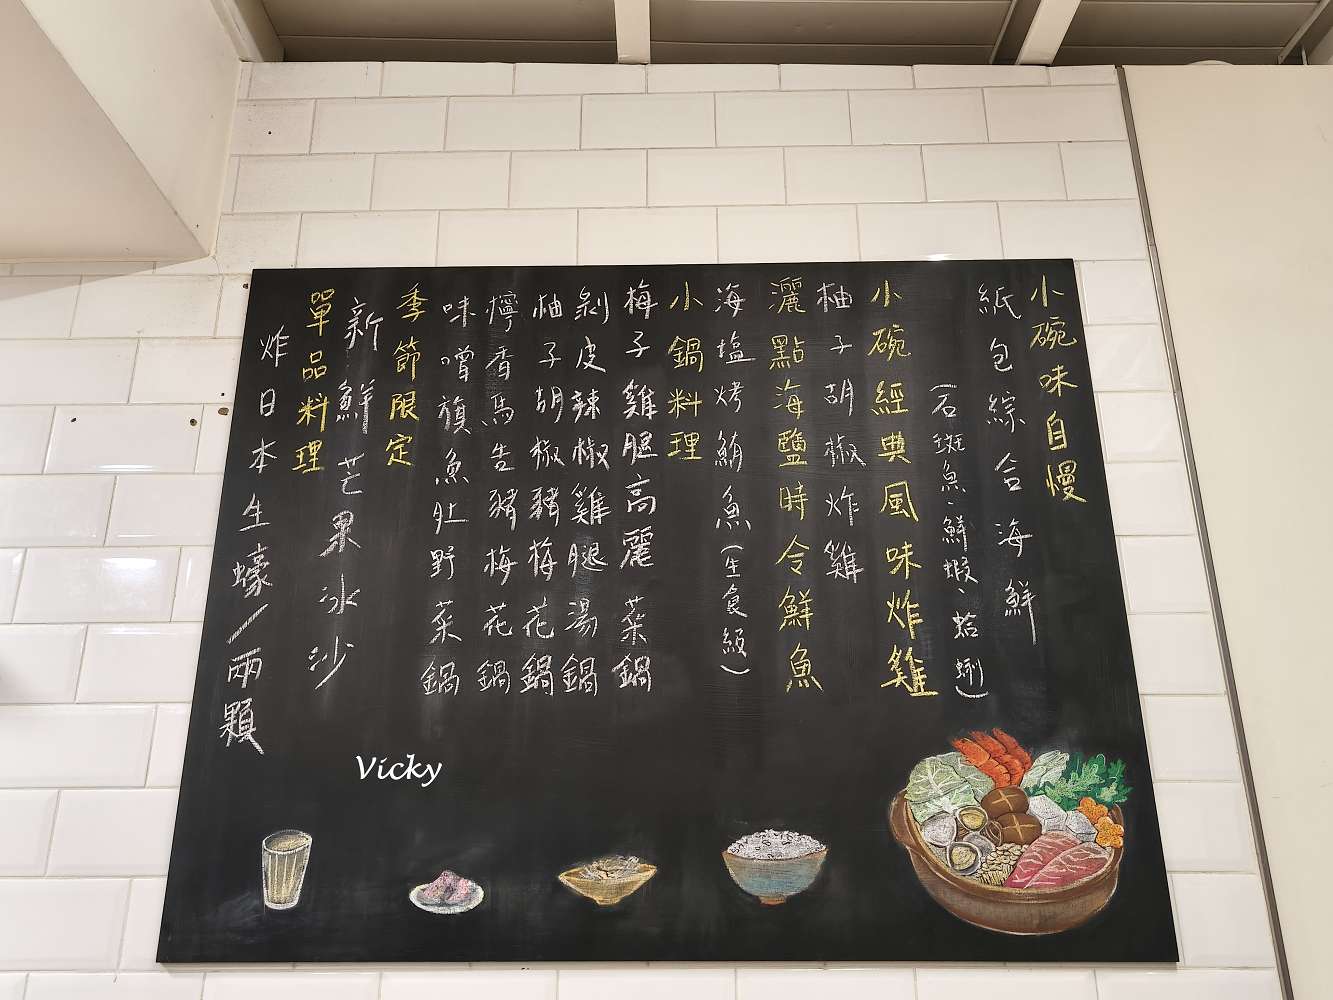 小碗味自慢
紙包綜合海鮮
(石斑魚、鮮蝦、蛤蜊)
小碗經典風味炸雞
柚子胡椒炸雞
灑點海鹽時令鮮魚
海塩烤鮪魚(生食級)
小鍋料理
梅子雞腿高麗菜鍋
剝皮辣椒雞腿湯鍋
柚子胡椒豬梅花鍋
檸香馬告豬梅花鍋
味噌旗魚肚野菜鍋
季節限定
新鮮芒果冰沙
單品料理
炸日本生蠔/兩顆
Vicky